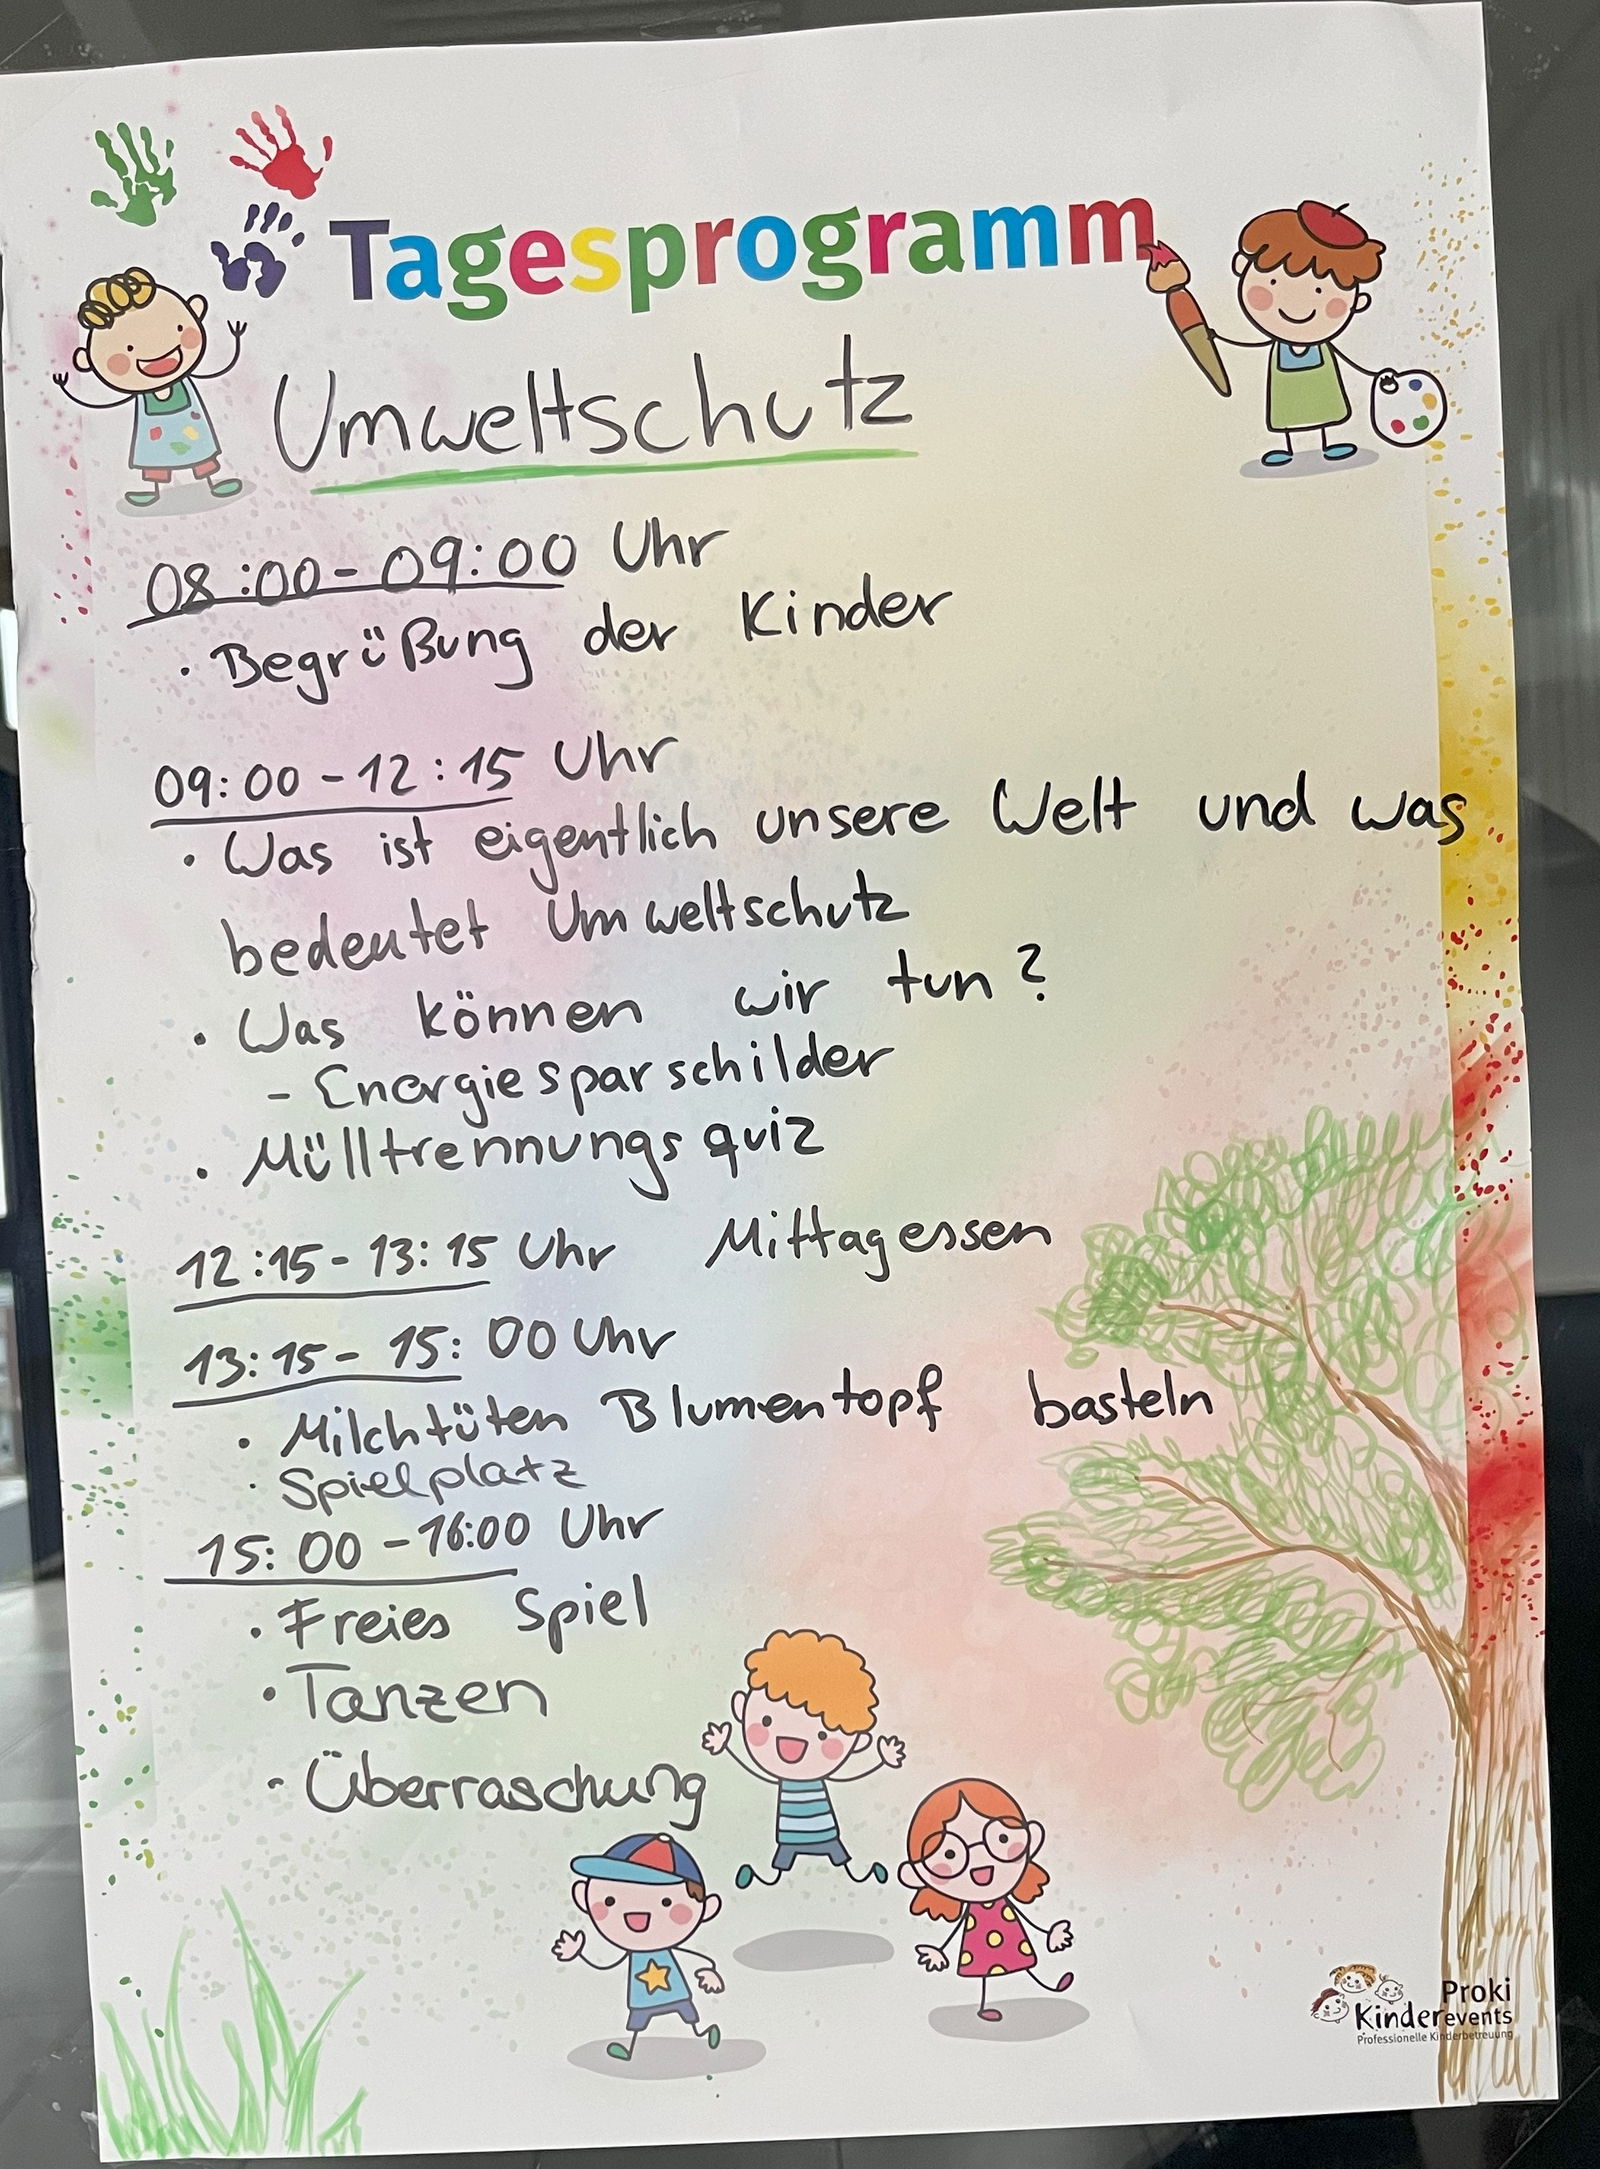 Tagesprogramm
Umweltschutz
08:00 - 09:00 Uhr
· Begrüßung der Kinder
09:00 - 12:15 Uhr
· Was ist eigentlich unsere Welt und was
bedeutet Umweltschutz
· Was können wir tun?
- Energiesparschilder
· Mülltrennungsquiz
12:15 - 13:15 Uhr Mittagessen
13:15 - 15:00 Uhr
· Milchtüten Blumentopf basteln
· Spielplatz
15:00 - 16:00 Uhr
· Freies Spiel
· Tanzen
- Überraschung
Proki
Kinderevents
Professionelle Kinderbetreuung